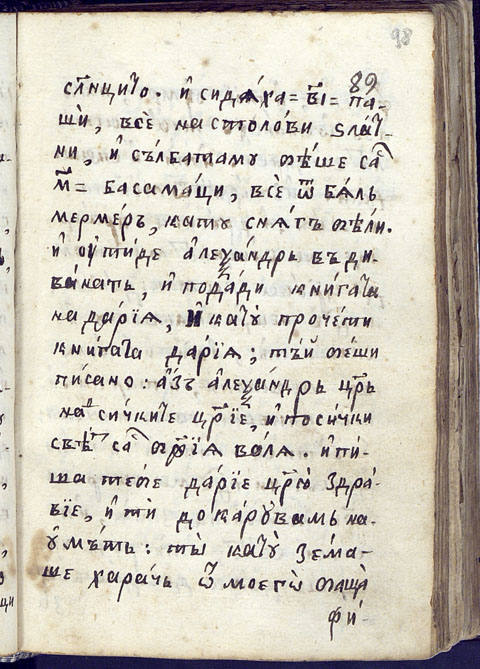 89
98
сл҃нцито. и҆ сидѧ́ха = в҃і = па-
ши̏, все̏ на столо́ви ѕла́т-
ни, и҆ съ́лбатаму бѣ́ше са
м҃ = басама́ци, все̏ ѿ бѧ́лъ
мерме́ръ, кату снѧ́гъ бѣ́ли.
и҆ ѹ҆ти́де а҆леѯа́ндръ въ ди-
ва́натъ, и҆ пода́ди книгата
на да́рїѧ, и҆ кату̀ прочѐти
кни́гата да́рїѧ; тъ́й бе́ши
пи́сано: а҆́зъ а҆леѯа́ндръ цр҃ь
над си́чките цр҃їе̏, и҆ по си́чки
свѣт са бж҃їѧ во́лѧ. и҆ пи́-
ша тебѐ да́рїе цр҃ю здра́-
вїе, и҆ тѝ до ка́рꙋвамъ на-
у҆мъ́тъ: ты̀ кату̀ зе́ма-
ше хара́чъ ѿ моегѡ̀ баща̀
фи́-